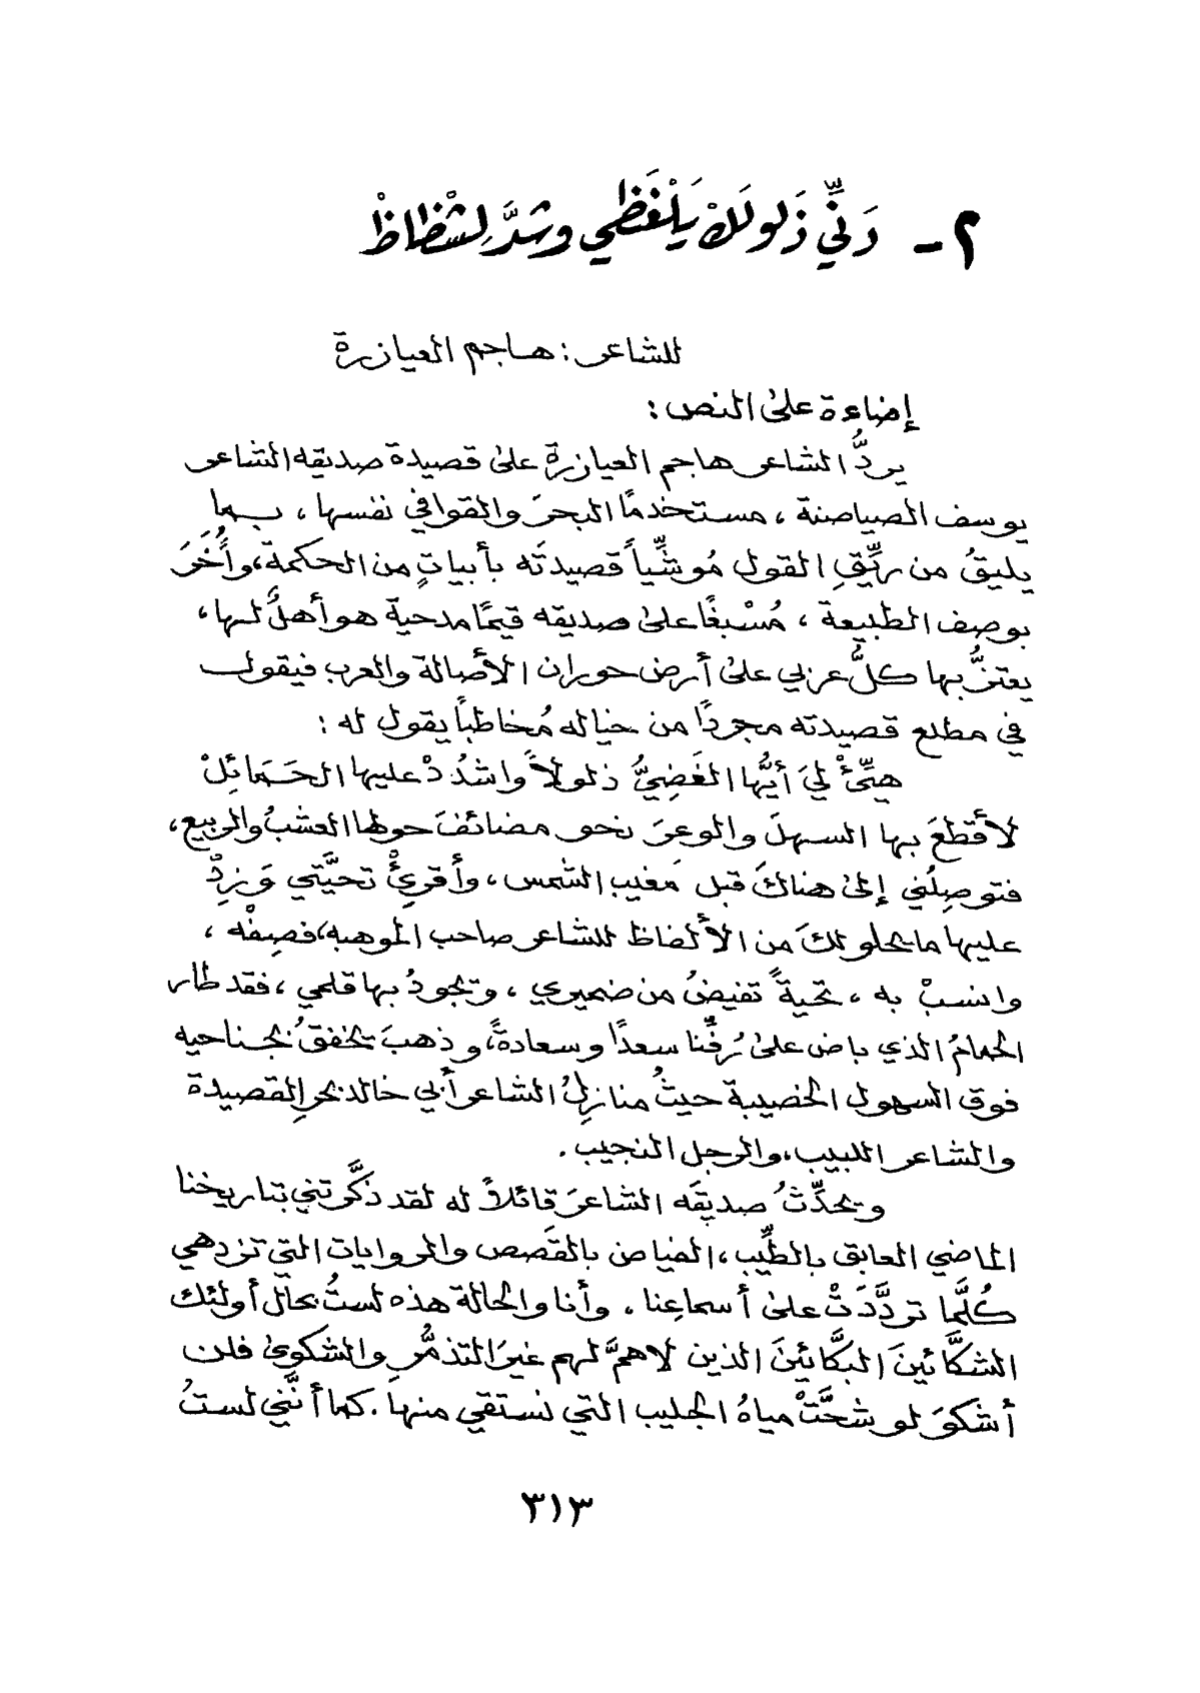 ٢ - دَنِّي ذَلولَكْ يَلْغَظي وشدَّ لِشْظاظْ
للشاعر : هاجم العيازرة
إضاءة على النص :
يردُّ الشاعر هاجم العيازرة على قصيدة صديقه الشاعر
يوسف الصياصنة ، مستخدمًا البحرَ والقوافي نفسها ، بما
يليقُ من ريِّقِ القول مُوشِّياً قصيدتَه بأبياتٍ من الحكمة، وأُخَرَ
بوصف الطبيعة ، مُسْبغًا على صديقه قيمًا مدحيةً هو أهلٌ لها ،
يعتزُّ بها كلُّ عربي على أرض حوران الأصالة والعرب فيقول
في مطلع قصيدته مجردًا من خياله مُخاطباً يقول له :
هيِّئْ ليَ أيُّها الغَضِيُّ ذلولاً واشدُدْ عليها الحَمَائِلْ
لأقطعَ بها السهلَ والوعرَ نحو مضائفَ حولها العشبُ والربيع ،
فتوصِلُني إلى هناكَ قبل مَغيب الشمس ، وأقرِئْ تحيَّتي وَزِدْ
عليها ما يحلو لكَ من الألفاظ للشاعر صاحب الموهبة، فصِفْه ،
وانسبْ به ، تحيةً تفيضُ من ضميري ، وتجودُ بها قلمي ، فقد طار
الحمامُ الذي باض على رُفِّنا سعدًا وسعادةً، وذهبَ يخفقُ بجناحيه
فوق السهول الخصيبة حيثُ منازلُ الشاعر أبي خالد بحرِ القصيدة
والشاعر اللبيب، والرجل النجيب .
ويحدِّثُ صديقَه الشاعرَ قائلاً له لقد ذكَّرتني بتاريخنا
الماضي العابق بالطِّيب، الفياض بالقَصص والروايات التي تزدهي
كُلَّما تردَّدَتْ على أسماعِنا ، وأنا والحالة هذه لستُ بحالِ أولئك
الشكَّائينَ البكَّائينَ الذين لا همَّ لهم غيرَ التذمُّرِ والشكوى فلن
أشكوَ لو شحَّتْ مياهُ الجليب التي نستقي منها . كما أنَّني لستُ
٣١٣